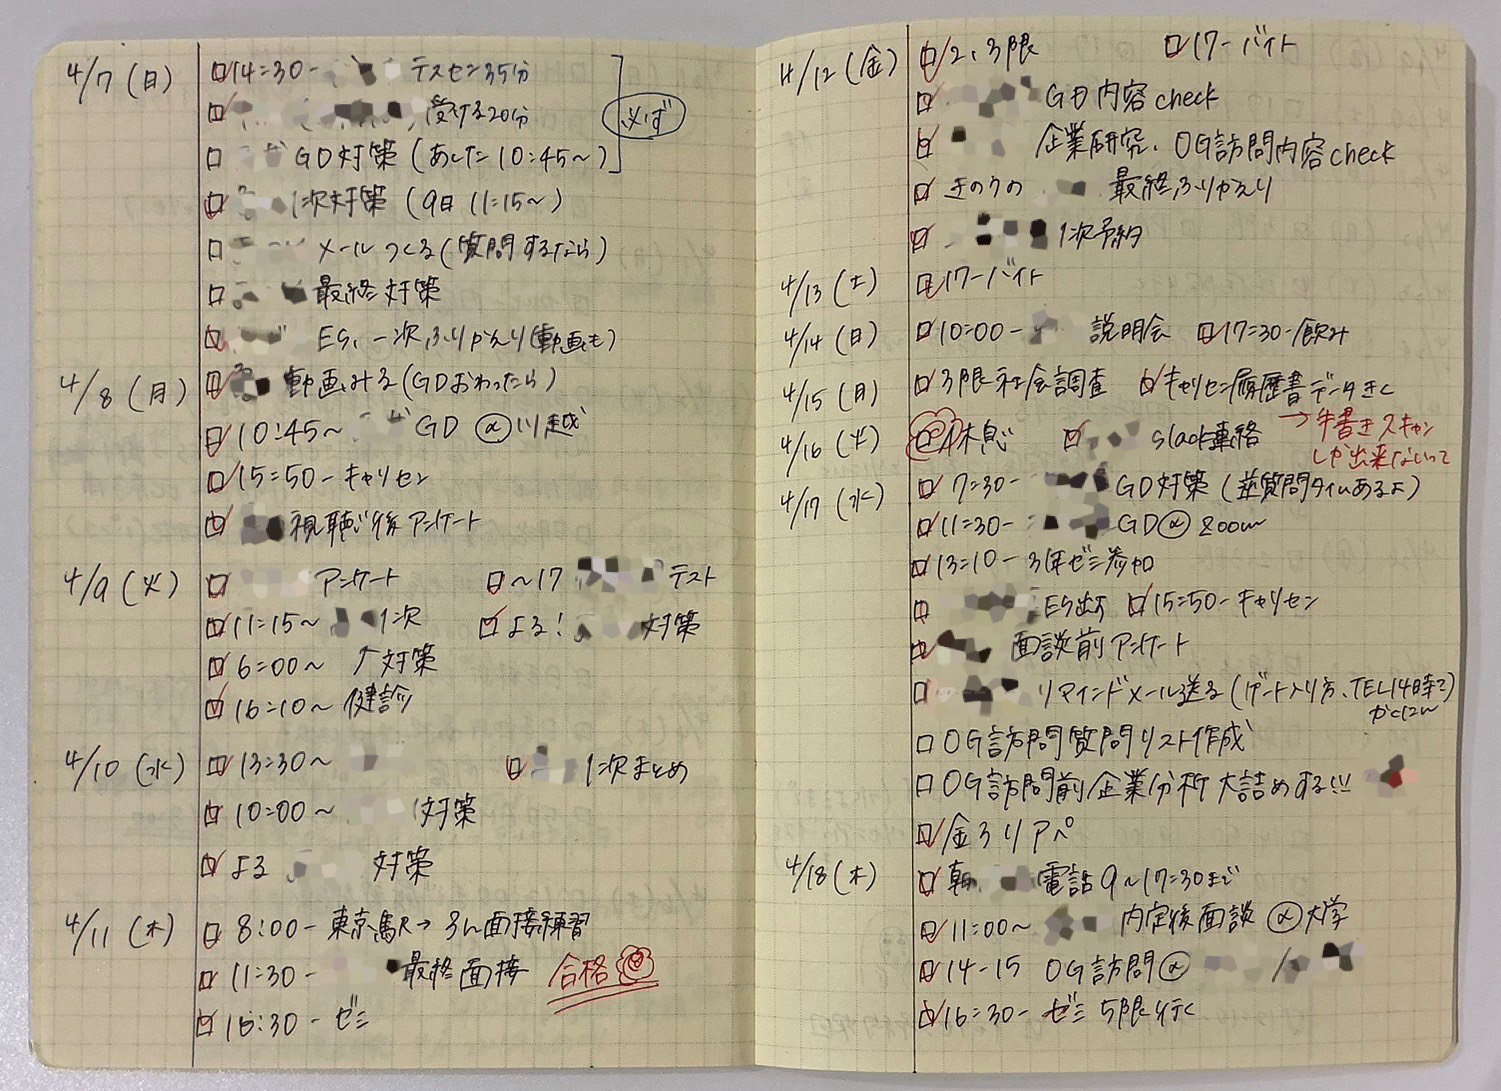 4/7 (日) □ 14:30- テスセン35分
□ 受ける20分 必ず
□ GD対策 (あした10:45〜)
□ 1次対策 (9日 11:15〜)
□ メールつくる(質問するなら)
□ 最終対策
□ ES、一次ふりかえり(動画も)
4/8 (月) □ 動画みる(GDおわったら)
□ 10:45〜 GD @川越
□ 15:50- キャリセン
□ 視聴後アンケート
4/9 (火) □ アンケート □ 〜17 テスト
□ 11:15〜 1次 □ よる! 対策
□ 6:00〜 ↑対策
□ 16:10〜 健診
4/10 (水) □ 13:30〜 □ 1次まとめ
□ 10:00〜 対策
□ よる 対策
4/11 (木) □ 8:00- 東京駅→ 面接練習
□ 11:30- 最終面接 合格
□ 16:30- ゼミ
4/12 (金) □ 2、3限 □ 17-バイト
□ GD内容check
□ 企業研究、OG訪問内容check
□ きのうの 最終ふりかえり
□ 1次予約
4/13 (土) □ 17-バイト
4/14 (日) □ 10:00- 説明会 □ 17:30-飲み
4/15 (月) □ 3限社会調査 □ キャリセン履歴書データきく
→手書きスキャン
しか出来ないって
4/16 (火) □ 休息 □ slack連絡
4/17 (水) □ 7:30- GD対策 (逆質問タイムあるよ)
□ 11:30- GD@zoom
□ 13:10- 3年ゼミ参加
□ ES出す □ 15:50-キャリセン
□ 面談前アンケート
□ リマインドメール送る(ゲート入り方、TEL14時で)
□ OG訪問質問リスト作成
□ OG訪問前企業分析大詰めする!!!
□ 金ろりアペ
4/18 (木) □ 朝、 電話 9〜17:30まで
□ 11:00〜 内定後面談 @大学
□ 14-15 OG訪問@ /
□ 16:30- ゼミ 5限行く